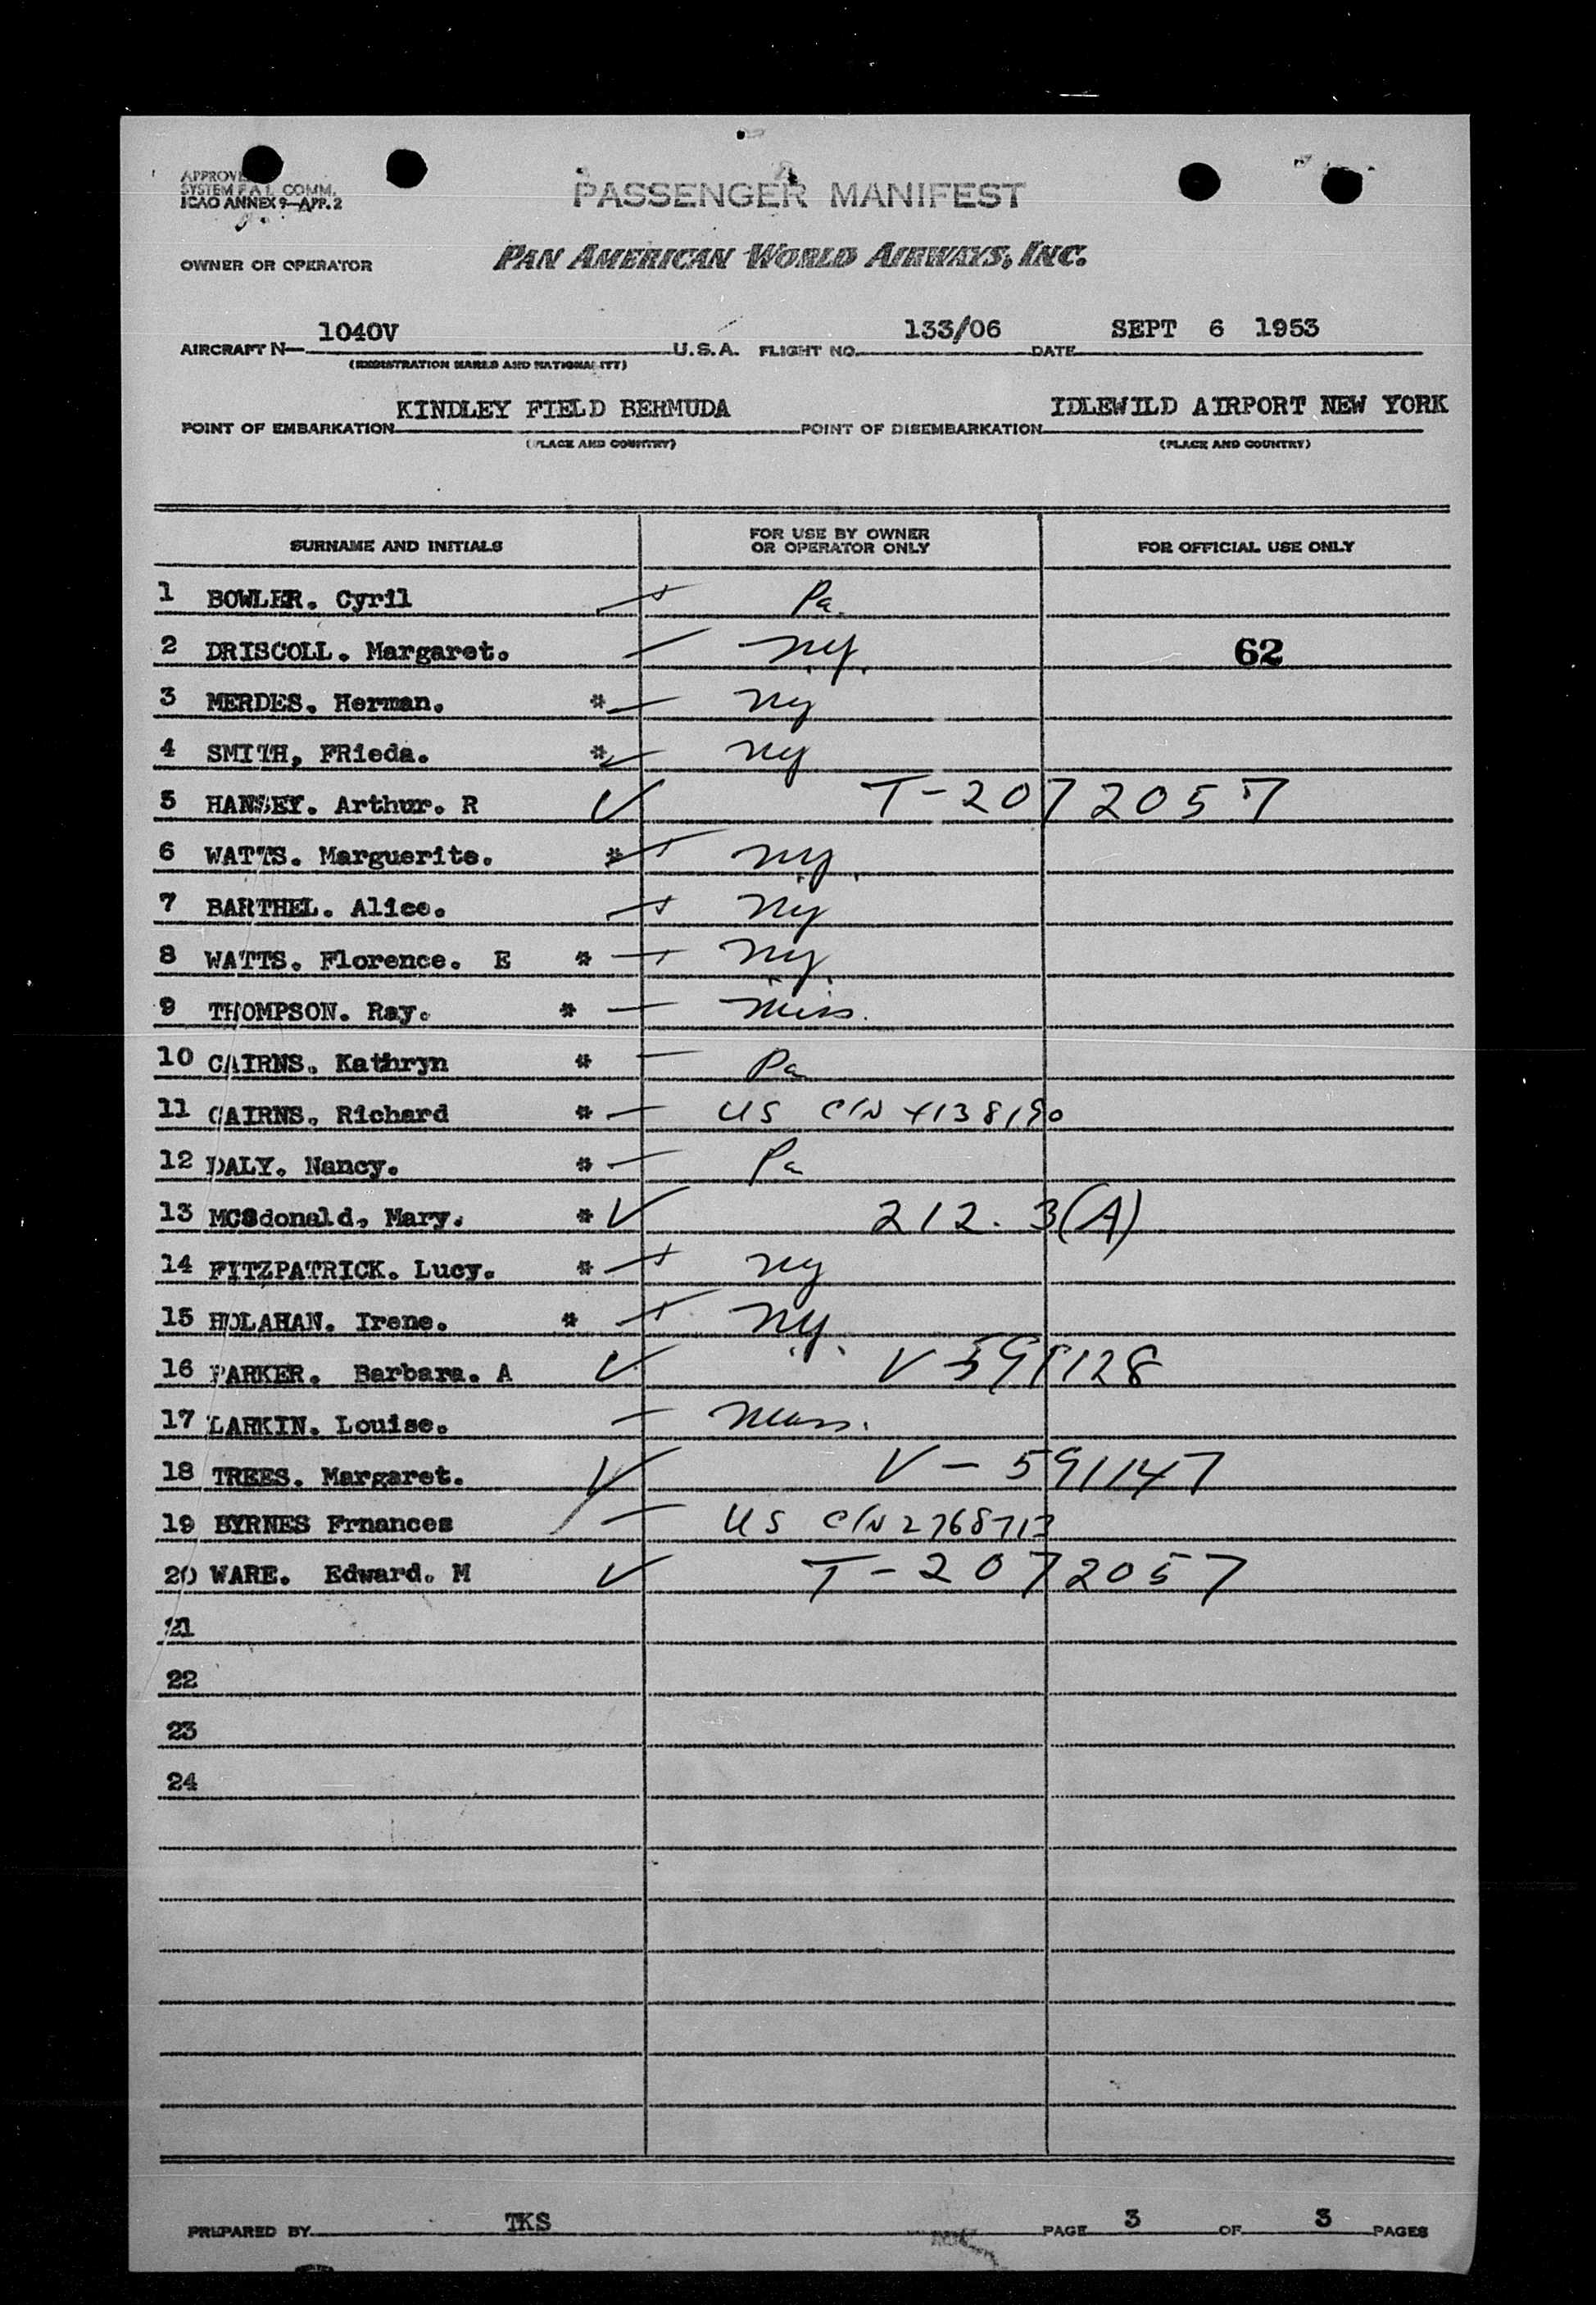 APPROVE
SYSTEM F.A.L. COMM.
ICAO ANNEX 9—APP. 2
PASSENGER MANIFEST
OWNER OR OPERATOR PAN AMERICAN WORLD AIRWAYS, INC.
AIRCRAFT N— 1040V U.S.A. FLIGHT NO. 133/06 DATE SEPT 6 1953
(REGISTRATION MARKS AND NATIONALITY)
POINT OF EMBARKATION KINDLEY FIELD BERMUDA POINT OF DISEMBARKATION IDLEWILD AIRPORT NEW YORK
(PLACE AND COUNTRY) (PLACE AND COUNTRY)
SURNAME AND INITIALS FOR USE BY OWNER OR OPERATOR ONLY FOR OFFICIAL USE ONLY
1 BOWLER. Cyril Pa.
2 DRISCOLL. Margaret. N.Y. 62
3 MERDES. Herman. * Ny
4 SMITH, FRieda. * Ny
5 HANSEY. Arthur. R T-2072057
6 WATTS. Marguerite. * N.Y.
7 BARTHEL. Alice. Ny
8 WATTS. Florence. E * N.Y.
9 THOMPSON. Ray. * Miss.
10 CAIRNS. Kathryn * Pa
11 CAIRNS. Richard * US C/N 4138190
12 DALY. Nancy. * Pa
13 MCSdonald, Mary. * 212.3(A)
14 FITZPATRICK. Lucy. * Ny
15 HOLAHAN. Irene. * N.Y.
16 PARKER. Barbara. A V-591128
17 LARKIN. Louise. Mass.
18 TREES. Margaret. V-591147
19 BYRNES Frnances US C/N 2768713
20 WARE. Edward. M T-2072057
21
22
23
24
PREPARED BY TKS PAGE 3 OF 3 PAGES